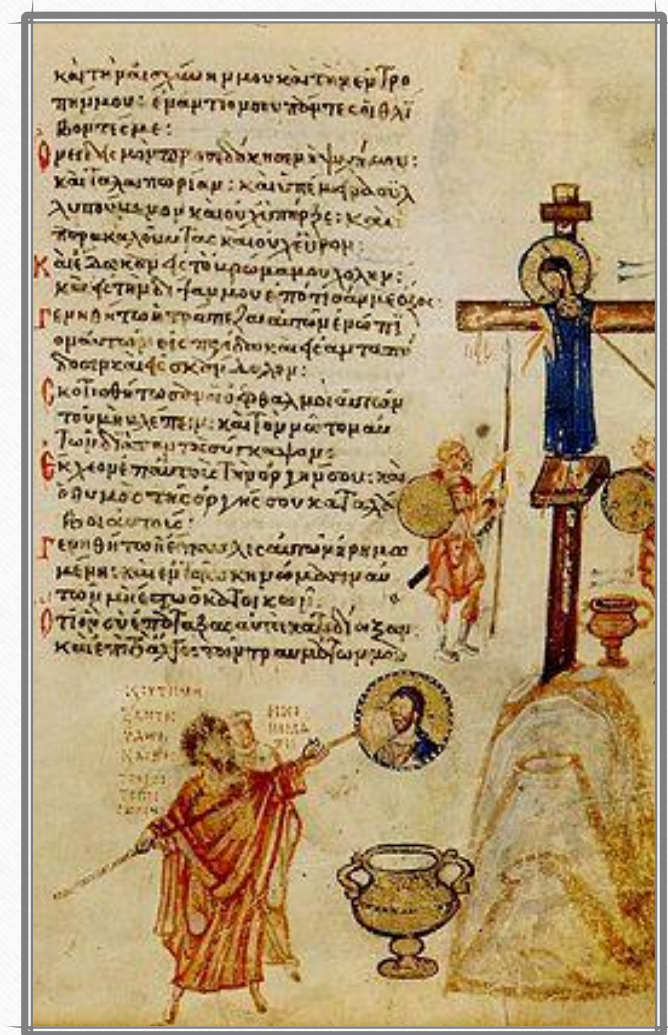 καὶ τὴν αἰσχύνην μου καὶ τὴν ἐντρο
πήν μου: ἐναντίον σου πάντες οἱ θλί
βοντές με:
καὶ ταλαιπωρίαν: καὶ ὑπέμεινα συλ
λυπούμενον καὶ οὐχ ὑπῆρξε: καὶ
παρακαλοῦντας καὶ οὐχ εὗρον:
Καὶ ἔδωκαν εἰς τὸ βρῶμά μου χολήν:
καὶ εἰς τὴν δίψαν μου ἐπότισάν με ὄξος:
Γενηθήτω ἡ τράπεζα αὐτῶν ἐνώπι
ον αὐτῶν εἰς παγίδα καὶ εἰς ἀνταπό
δοσιν καὶ εἰς σκάνδαλον:
Σκοτισθήτωσαν οἱ ὀφθαλμοὶ αὐτῶν
τοῦ μὴ βλέπειν: καὶ τὸν νῶτον αὐ
τῶν διὰ παντὸς σύγκαμψον:
Ἔκχεον ἐπ' αὐτοὺς τὴν ὀργήν σου: καὶ
ὁ θυμὸς τῆς ὀργῆς σου καταλά
βοι αὐτούς:
Γενηθήτω ἡ ἔπαυλις αὐτῶν ἠρημω
μένη: καὶ ἐν τοῖς σκηνώμασιν αὐ
τῶν μὴ ἔστω ὁ κατοικῶν:
Ὅτι ὃν σὺ ἐπάταξας αὐτοὶ κατεδίωξαν:
καὶ ἐπὶ τὸ ἄλγος τῶν τραυμάτων μου